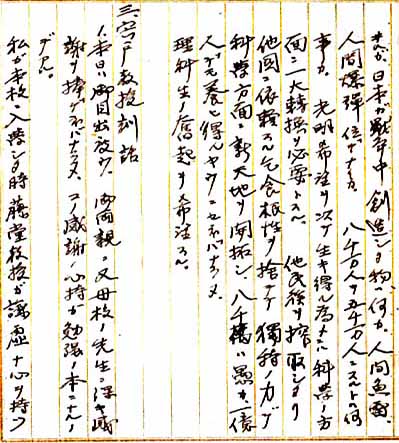 タガ、日本ガ戦争中創造シタ物ハ何カ。人間魚雷、
人間爆弾位デナイカ。八千万人ヲ五千万人ニスルトハ何
事カ。光明ト希望ヲツケ生キ得ル為ニハ科学ノ方
面ニ一大転換ヲ必要トスル。他民族ヲ搾取シタリ
他国ニ依頼スル乞食根性ヲ捨テテ独特ノ力デ
科学方面ニ新天地ヲ開拓シ、八千万ハ愚カ一億
人デモ養ヒ得ルヤウニセネバナラヌ。
理科生ノ奮起ヲ希望スル。
三、宍戸教授訓話
1.本日ハ御目出度ウ。御両親ニ又母校ノ先生ニ深キ感
謝ヲ捧ゲネバナラヌ。コノ感謝ノ心持ガ勉強ノ本ニナルノ
デアル。
私ガ本校ニ入学シタ時藤堂教授ガ謙虚ナ心ヲ持ツ